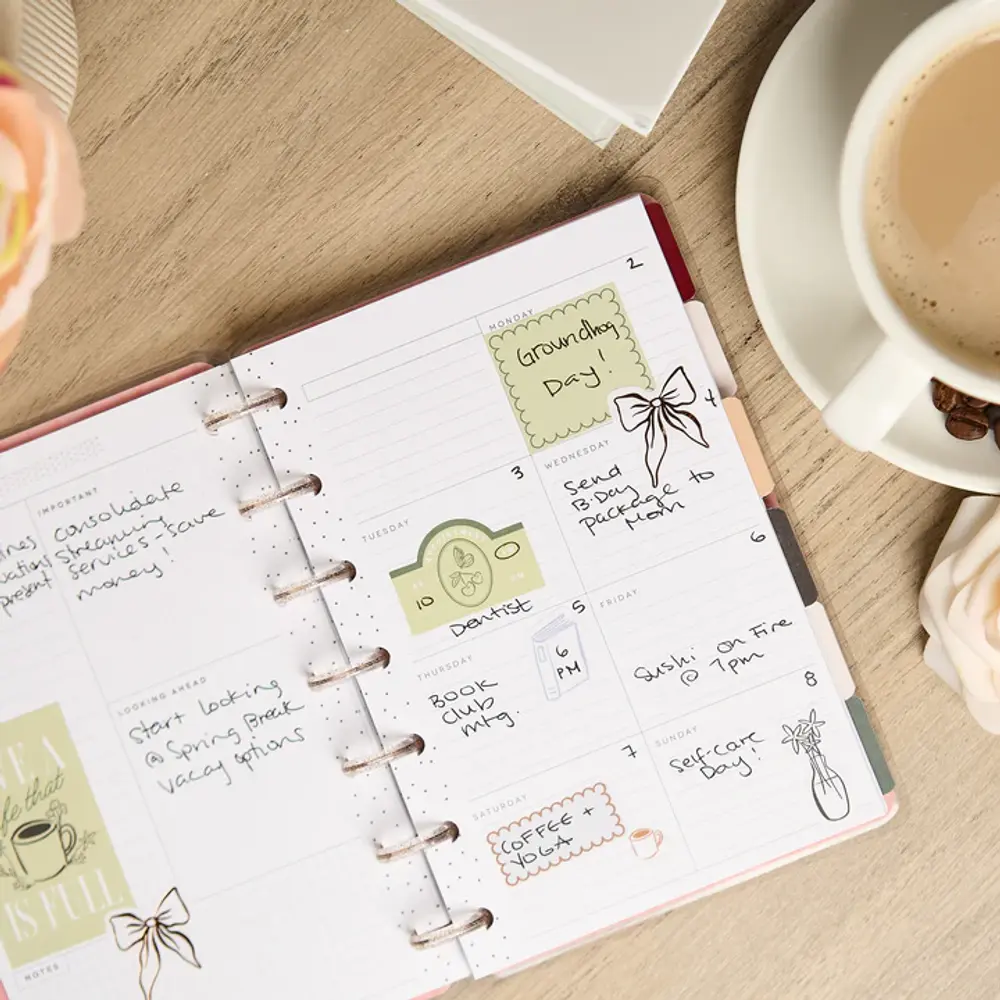 IMPORTANT
consolidate
streaming
services-save
money!
present
LOOKING AHEAD
Start looking
@ Spring Break
vacay options
fe that
IS FULL
NOTES
MONDAY
2
Groundhog
Day!
TUESDAY
3
10
Dentist
WEDNESDAY
4
Send
B-Day
package to
Mom
THURSDAY
5
BOOK
club
mtg.
6
PM
FRIDAY
6
Sushi on Fire
@ 7pm
SATURDAY
7
COFFEE +
YOGA
SUNDAY
8
Self-care
Day!